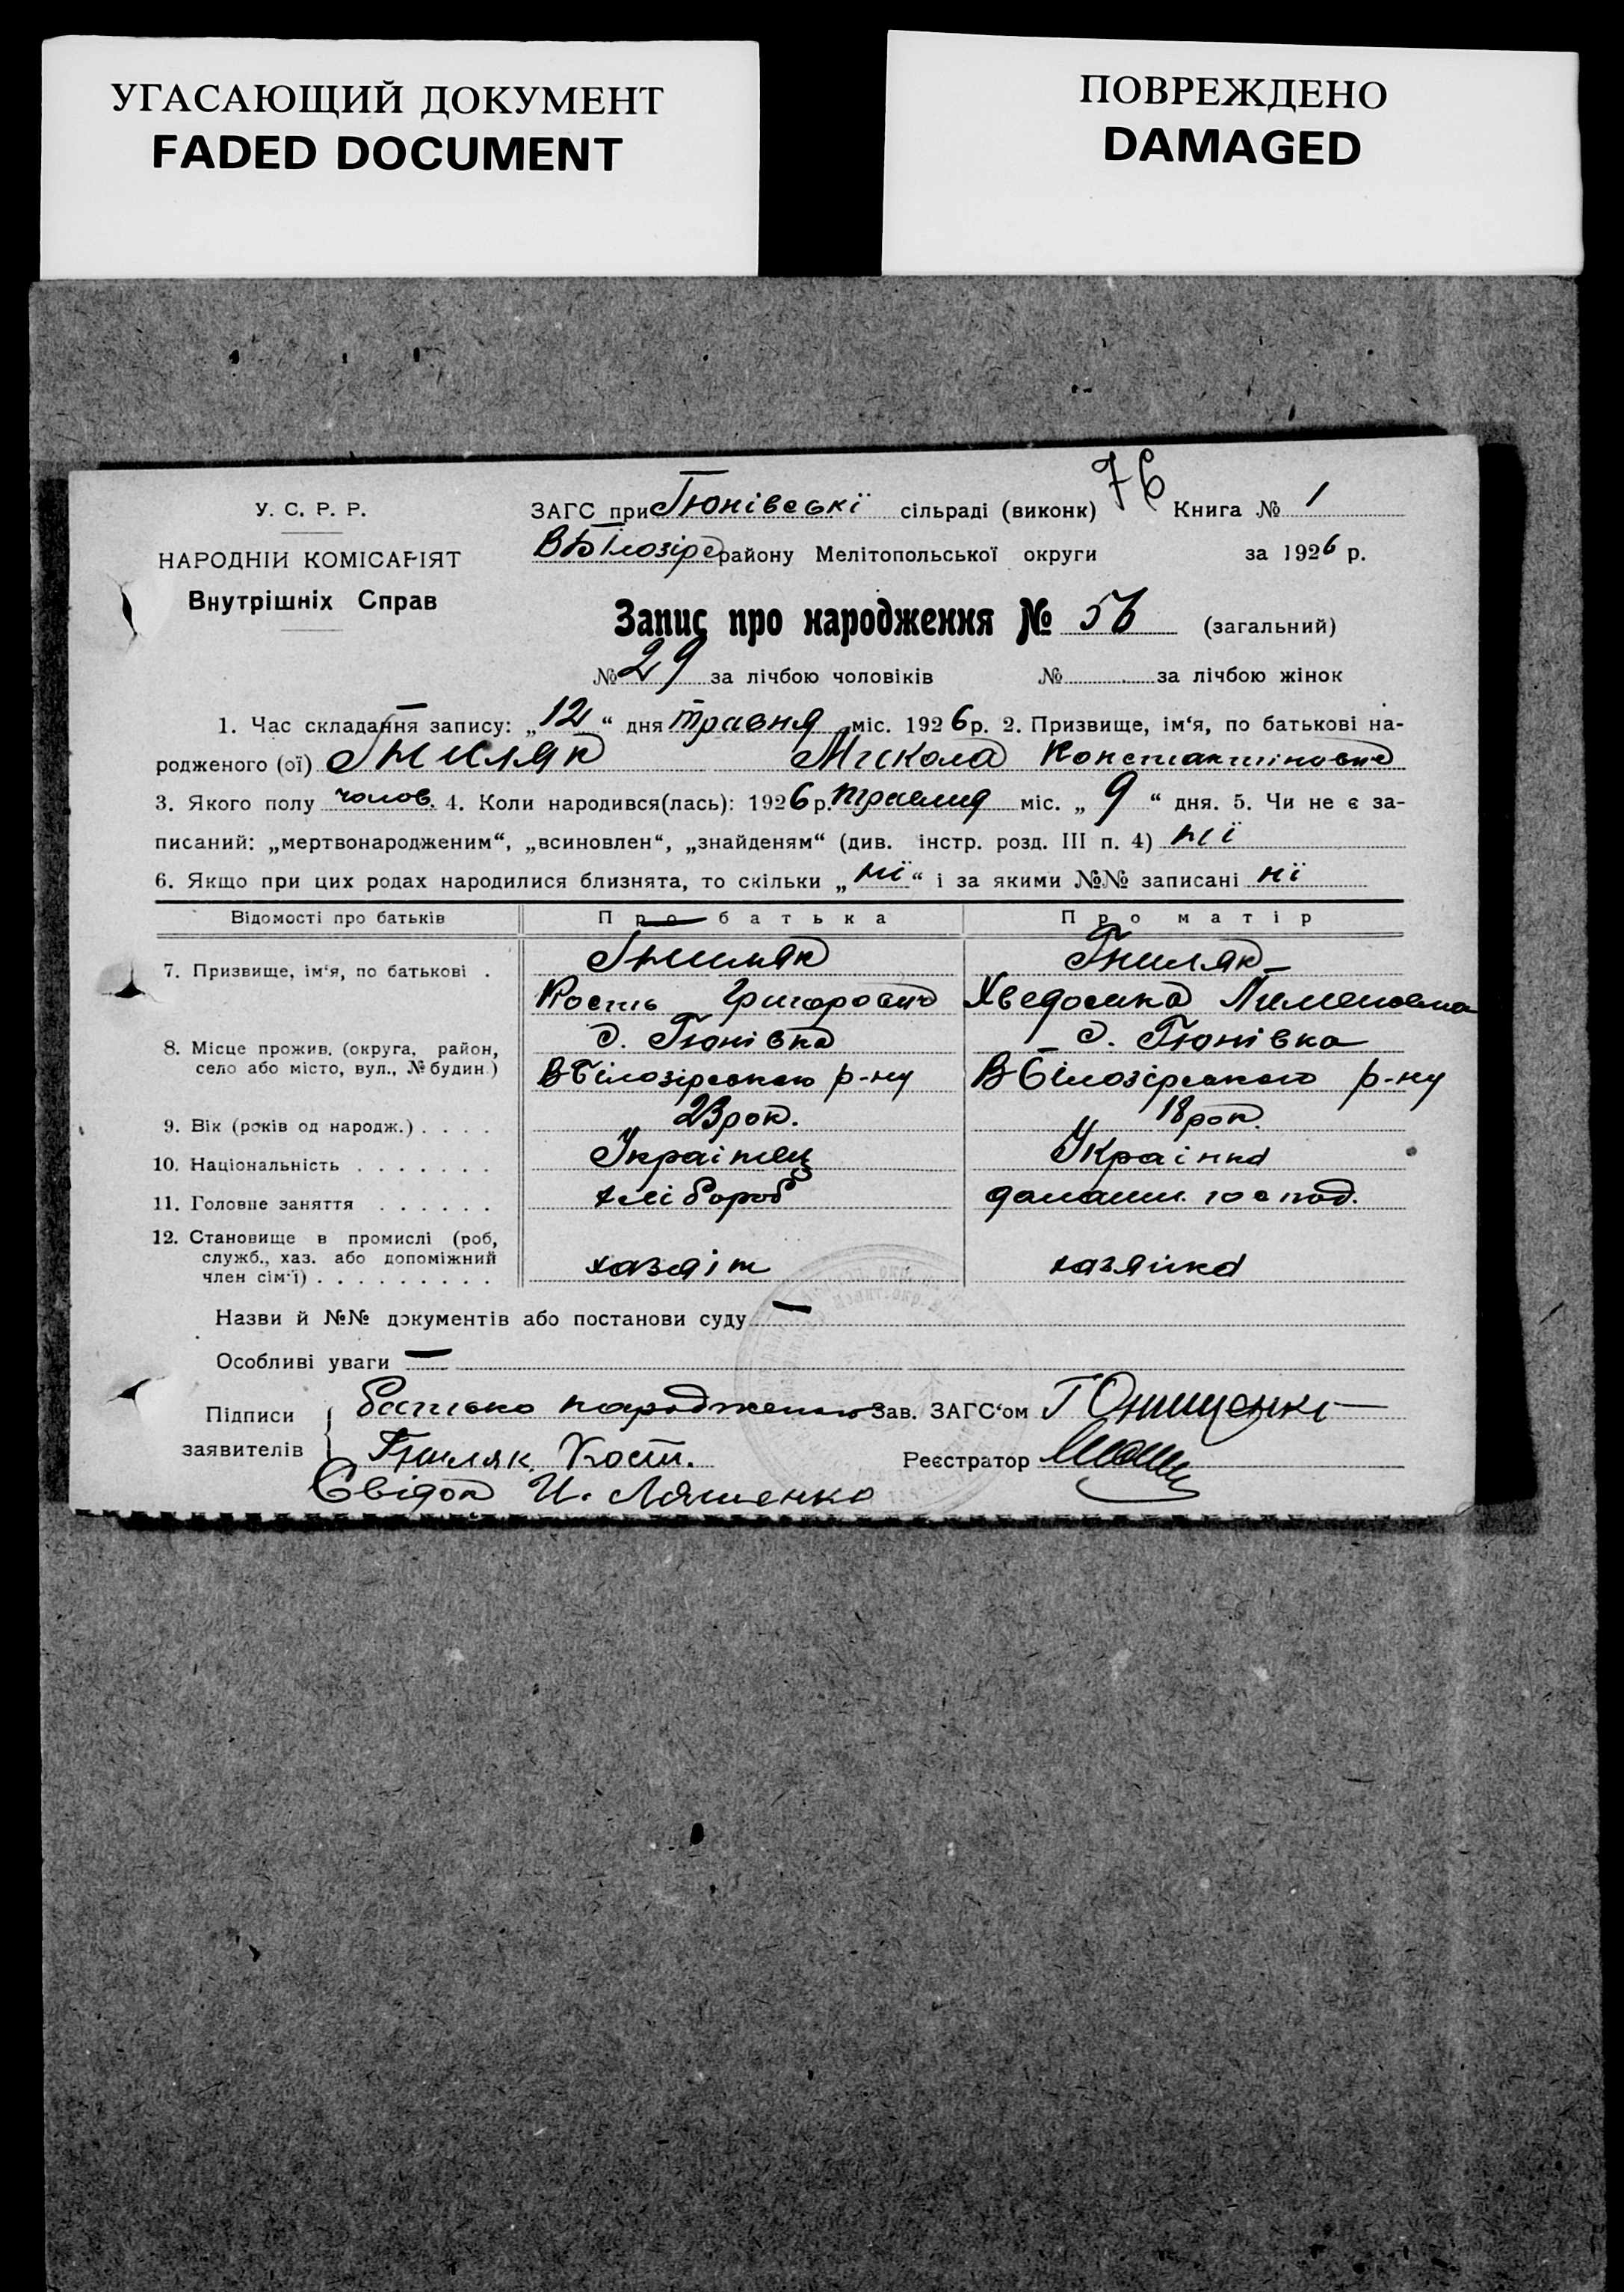 УГАСАЮЩИЙ ДОКУМЕНТ
FADED DOCUMENT
ПОВРЕЖДЕНО
DAMAGED
У. С. Р. Р.
НАРОДНІИ КОМІСАРІЯТ
Внутрішніх Справ
ЗАГС при Гюнівські сільраді (виконк) 76 Книга № 1
ВБілозірс району Мелітопольської округи за 1926 р.
Запис про народження № 56 (загальний)
№ 29 за лічбою чоловіків № за лічбою жінок
1. Час складання запису: „12“ дня травня міс. 1926 р. 2. Призвище, ім‘я, по батькові на-
родженого (ої) Гниляк Микола Константинович
3. Якого полу чолов. 4. Коли народився(лась): 1926 р. травня міс. „9“ дня. 5. Чи не є за-
писаний: „мертвонародженим“, „всиновлен“, „знайденям“ (див. інстр. розд. III п. 4) ні
6. Якщо при цих родах народилися близнята, то скільки „ні“ і за якими №№ записані ні
Відомості про батьків Про батька Про матір
7. Призвище, ім‘я, по батькові . Гниляк Гниляк
Кость Григорович Хведосина
8. Місце прожив. (округа, район, с. Гюнівка с. Гюнівка
село або місто, вул., № будин.) ВБілозірського р-ну ВБілозірського р-ну
9. Вік (років од народж.) . . . . 23 рок. 18 рок.
10. Національність . . . . . . . Українец Українка
11. Головне заняття . . . . . . хлібороб домашн. господ.
12. Становище в промислі (роб,
служб., хаз. або допоміжний
член сім‘ї) . . . . . . . . . хазяін хазяйка
Назви й №№ документів або постанови суду —
Особливі уваги —
Підписи заявителів Батько народженого Зав. ЗАГС‘ом Г Онищенко
Гниляк Кост. Реєстратор
Свідок И. Ляшенко